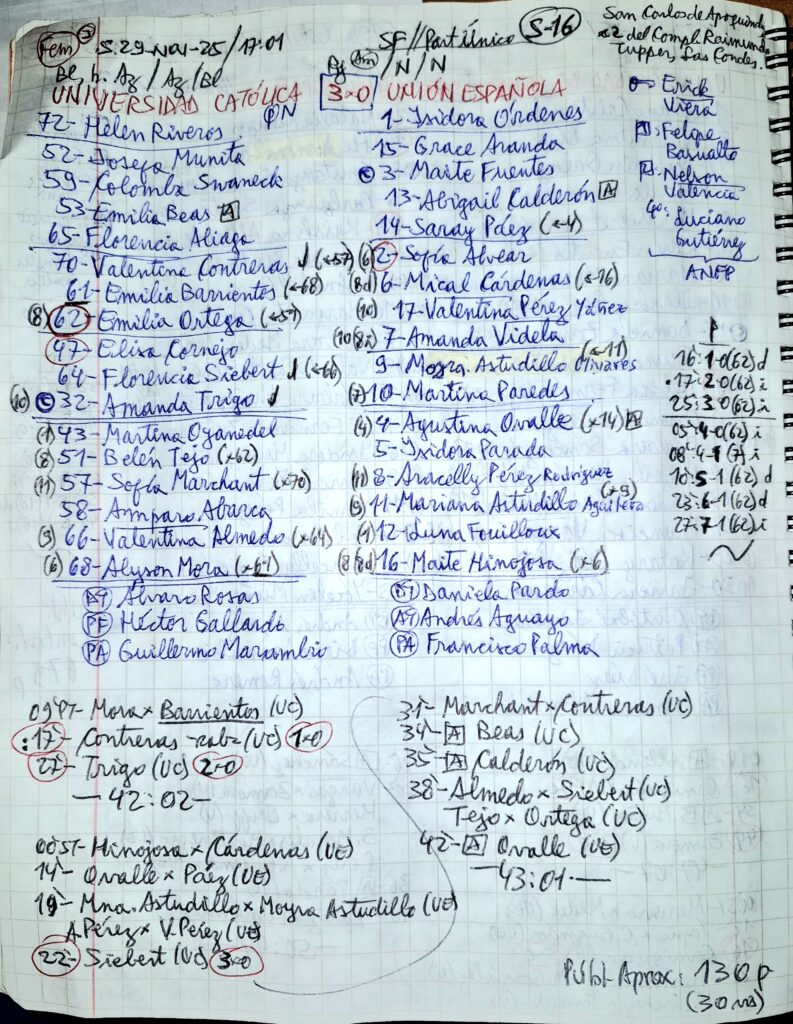 Fem S.29-NOV-25/17:01 SF//Part Único S-16
Bl, h. Az/Az/Bl /N/N
UNIVERSIDAD CATÓLICA 3×0 UNIÓN ESPAÑOLA
San Carlos de Apoquindo
n2 del Compl. Raimundo
Tupper, Las Condes.
72- Helen Riveros PN
52- Josefa Munita
59- Colomba Swaneck
53- Emilia Beas A
65- Florencia Aliaga
70- Valentina Contreras (←57)
61- Emilia Barrientos (←68)
(8) 62- Emilia Ortega
47- Elisa Cornejo
64- Florencia Siebert (←66)
(10) C 32- Amanda Trigo
(1) 43- Martina Oyanedel
(8) 51- Belén Tejo (×62)
(11) 57- Sofía Marchant (×70)
58- Amparo Abarca
(3) 66- Valentina Almedo (×64)
(6) 68- Alyson Mora (×61)
DT Álvaro Rosas
PF Héctor Gallardo
PA Guillermo Marambio
1- Isidora Órdenes
15- Grace Aranda
C 3- Maite Fuentes
13- Abigail Calderón A
14- Saray Páez (←4)
(6) 2- Sofía Alvear
(8d) 6- Mical Cárdenas (←16)
(10) 17- Valentina Pérez Yáñez
7- Amanda Videla
9- Moyra Astudillo Olivares (←11)
(7) 10- Martina Paredes
(4) 4- Agustina Ovalle (×14) A
5- Isidora Parada
(11) 8- Aracelly Pérez Rodríguez
(9) 11- Mariana Astudillo Aguilera (×9)
(1) 12- Luna Fouilloux
(8 8d) 16- Maite Hinojosa (×6)
DT Daniela Pardo
AT Andrés Aguayo
PA Francisco Palma
Erick
Viera
Felipe
Basualto
Nelson
Valencia
4o: Luciano
Gutiérrez
ANFP
16: 1-0(62)d
17: 2-0(62)i
25: 3-0(62)i
05: 4-0(62)i
08: 4-1(7)i
10: 5-1(62)d
23: 6-1(62)d
27: 7-1(62)i
09'47- Mora × Barrientos (UC)
:17- Contreras -rab- (UC) 1×0
27- Trigo (UC) 2×0
— 42:02 —
00'57- Hinojosa × Cárdenas (UE)
14- Ovalle × Páez (UE)
19- Mna. Astudillo × Moyra Astudillo (UE)
A.Pérez × V.Pérez (UE)
22- Siebert (UC) 3×0
31- Marchant × Contreras (UC)
34- A Beas (UC)
35- A Calderón (UC)
38- Almedo × Siebert (UC)
Tejo × Ortega (UC)
42- A Ovalle (UE)
— 43:01 —
Públ- Aprox: 130 p
(30 vis)